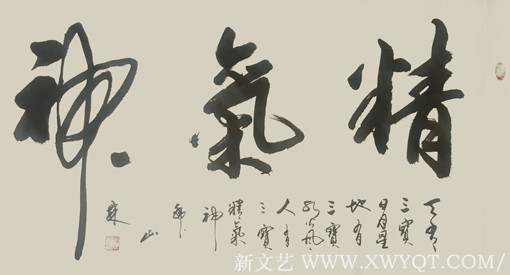 精氣神
天有
三寶
日月星
地有
三寶
水火風
人有
三寶
精氣
神
山
新文艺 WWW.XWYQT.COM